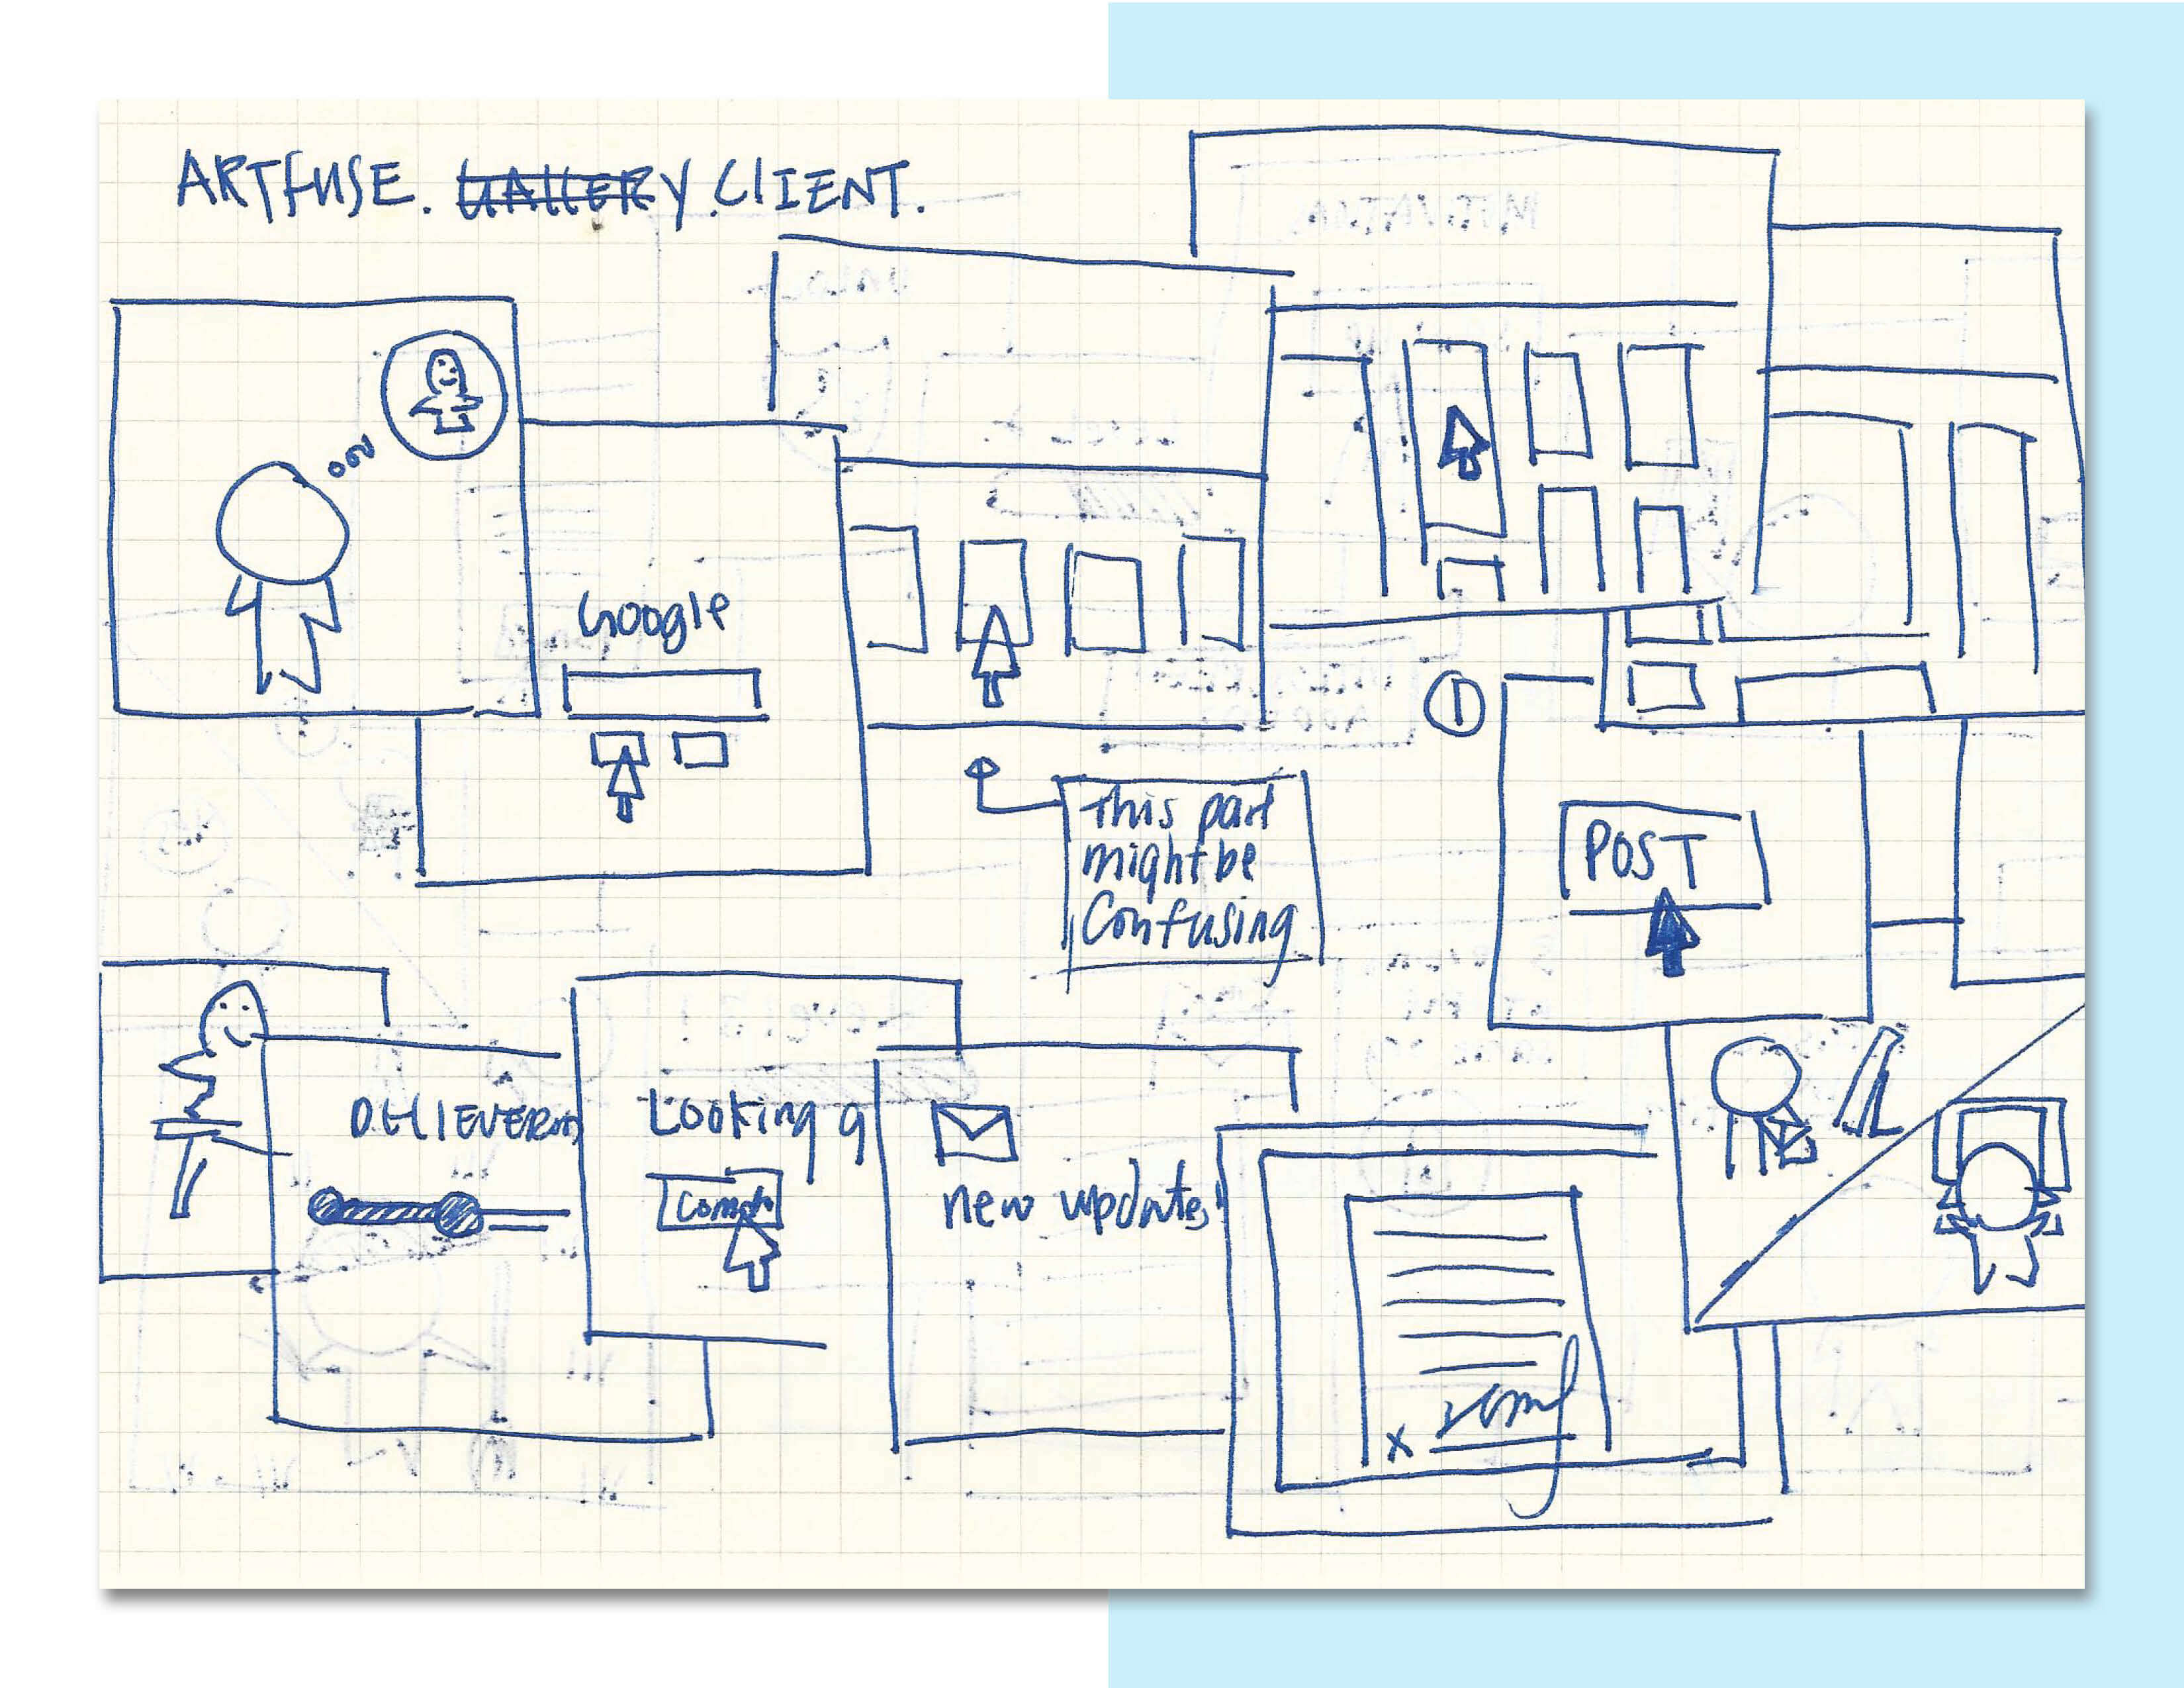 ARTFUSE. GALLERY.CLIENT.
Google
①
This part
might be
Confusing
POST
Looking g
new updates!
x